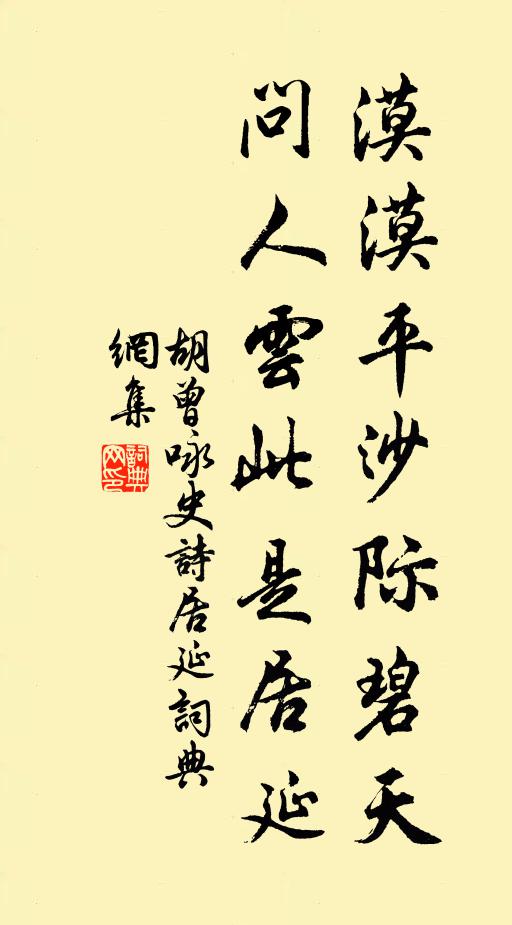 漠漠平沙际碧天
問人雲此是居延
胡曾咏史詩居延詞典
網集
詞典
网印